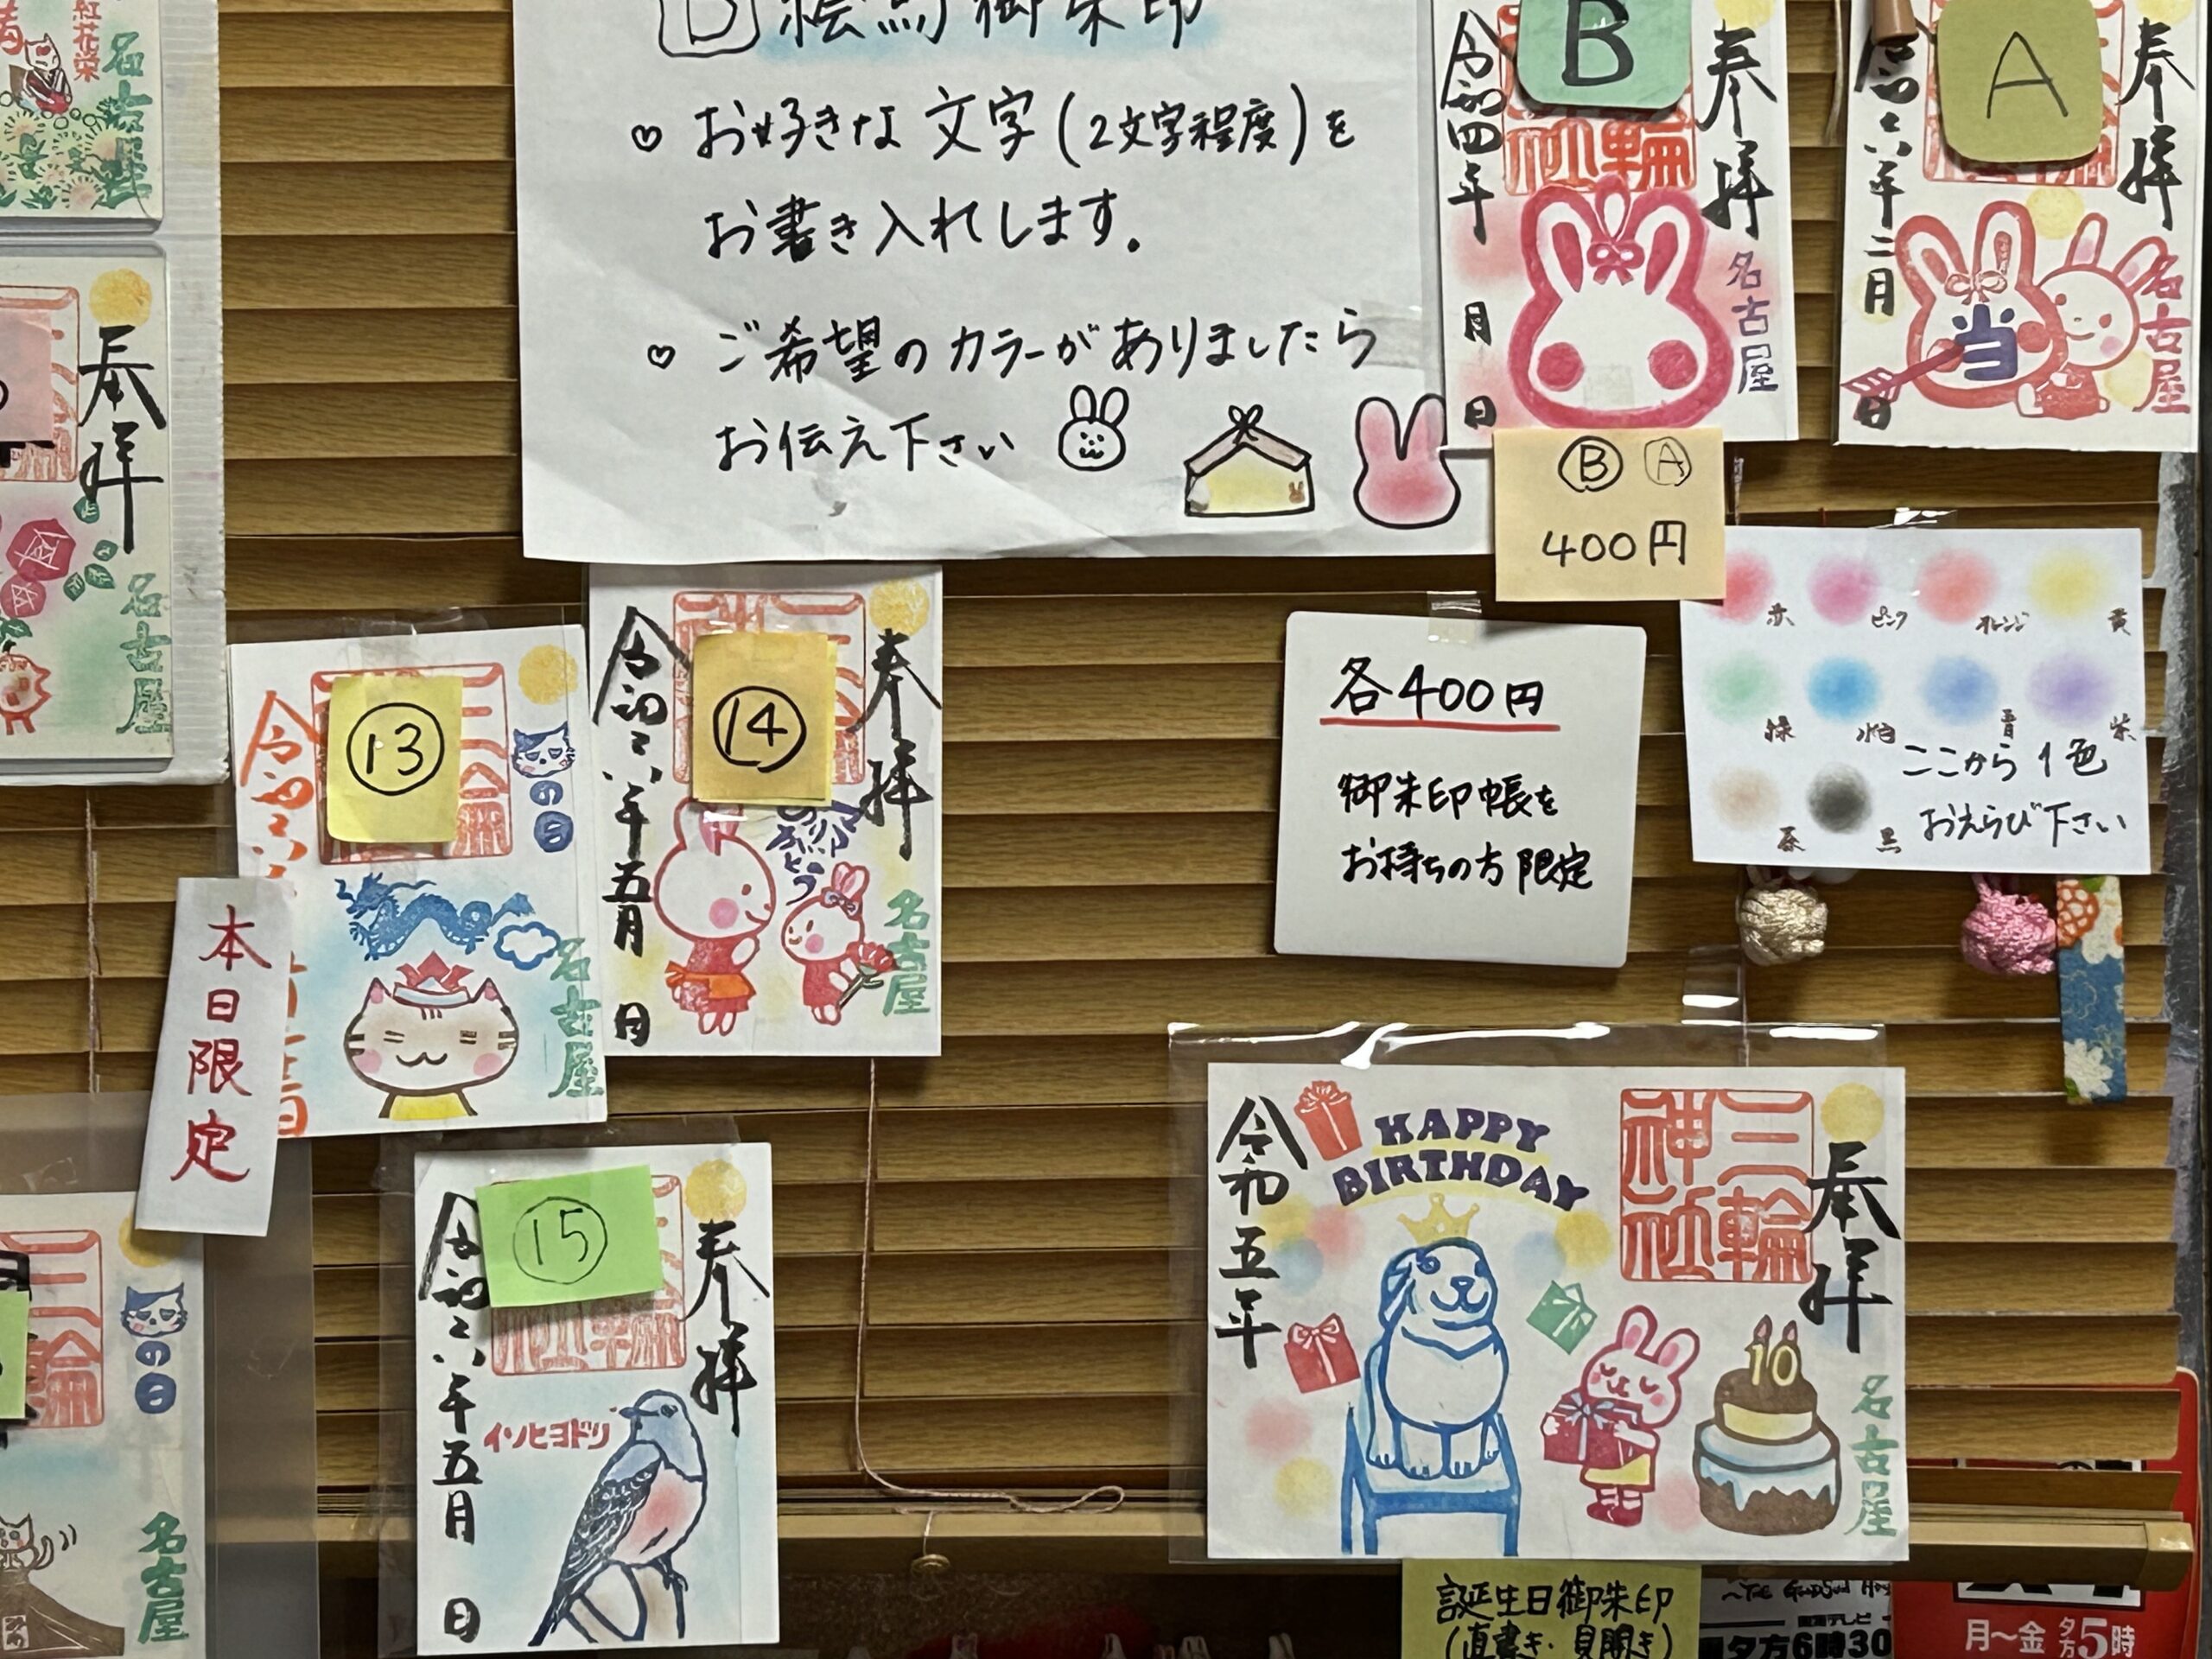 B 絵馬御朱印
♡ お好きな文字(2文字程度)を
お書き入れします。
♡ ご希望のカラーがありましたら
お伝え下さい
B
奉拝
令和四年 月 日
名古屋
A
奉拝
令和六年二月 日
当
名古屋
Ⓑ Ⓐ
400円
各400円
御朱印帳を
お持ちの方限定
赤 ピンク オレンジ 黄
緑 水色 青 紫
茶 黒
ここから1色
おえらび下さい
紅花栄
名古屋
奉拝
名古屋
⑬
の日
名古屋
本日限定
⑭
奉拝
令和六年五月 日
名古屋
⑮
奉拝
令和六年五月 日
イソヒヨドリ
三輪
の日
名古屋
奉拝
三輪神社
HAPPY
BIRTHDAY
令和五年
10
名古屋
誕生日御朱印
(直書き・見開き)
夕方6時30
月〜金 夕方5時